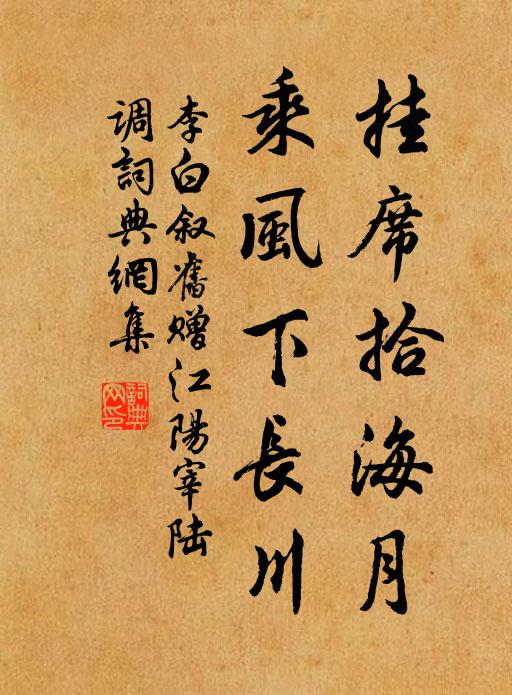 挂席拾海月
乘風下長川
李白叙舊赠江陽宰陆
调詞典網集
詞典
网印